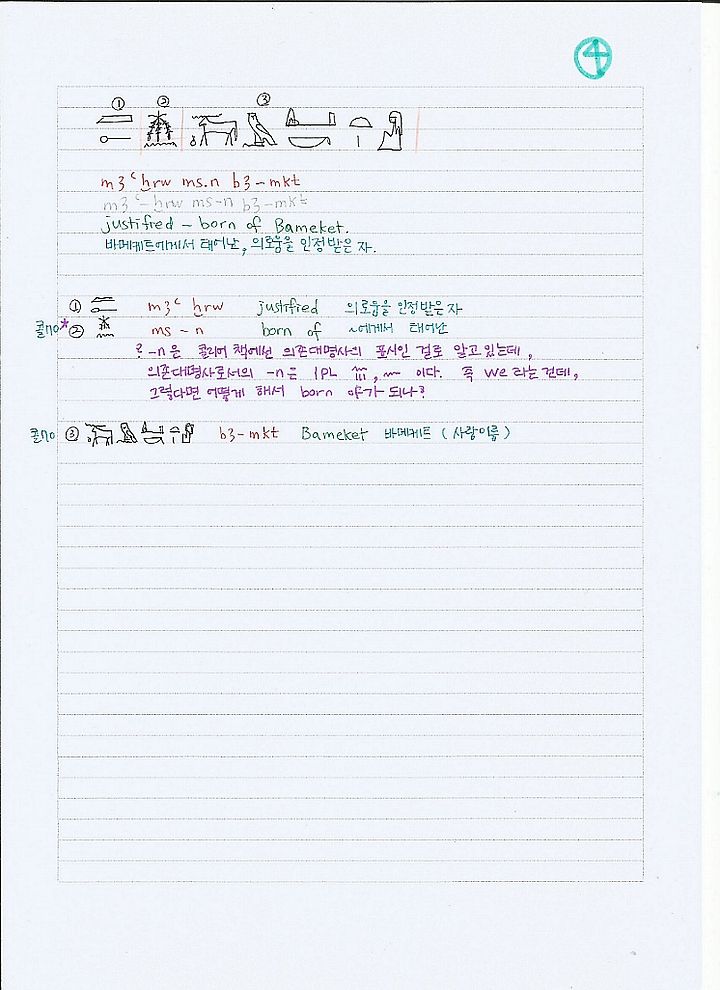 ④
① ② ③
m3ꜥ ḫrw ms.n b3-mkt
m3ꜥ-ḫrw ms-n b3-mkt
justified - born of Bameket.
바메케트에게서 태어난, 의로움을 인정받은 자.
① m3ꜥ ḫrw justified 의로움을 인정받은 자
콜770* ② ms - n born of ~에게서 태어난
? -n은 콜리어 책에선 의존대명사의 표시인 걸로 알고있는데,
의존대명사로서의 -n은 1PL , 이다. 즉 we 라는 건데,
그렇다면 어떻게 해서 born of가 되나?
③ b3-mkt Bameket 바메케트 (사람이름)